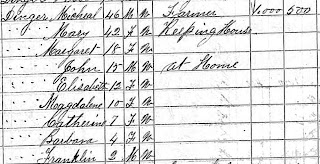 Dinger Micheal 46 M W Farmer 1,000 500
Mary 42 F W Keeping House
Margaret 18 F W
John 15 M W at Home
Elisabeth 12 F W
Magdalene 10 F W
Catherine 7 F W
Barbara 4 F W
Franklin 2 M W